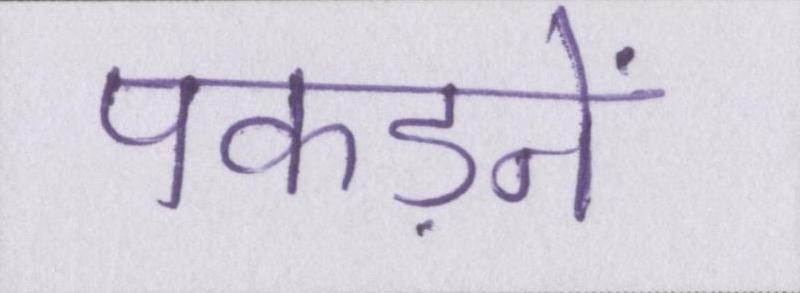 पकड़नें